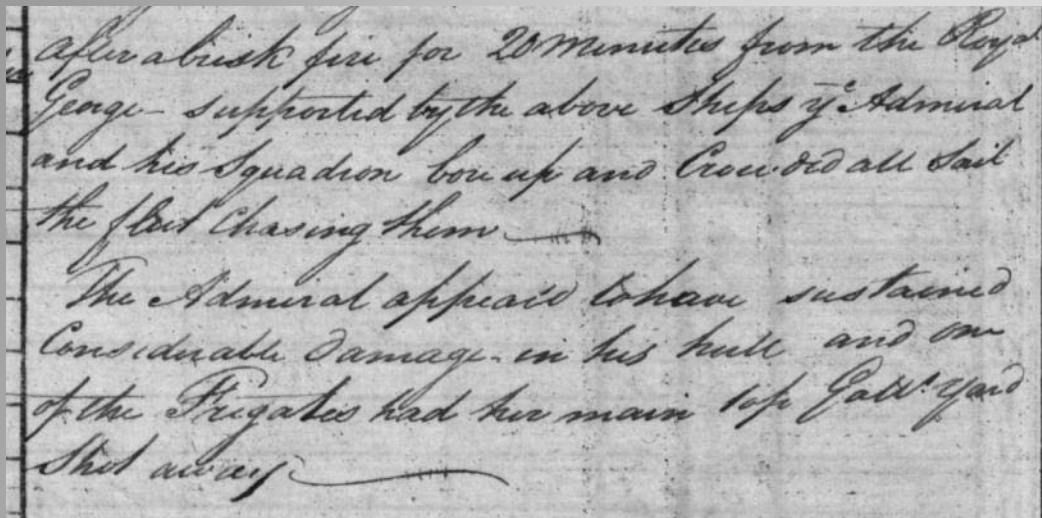 after a brisk fire for 20 Minutes from the Royal
George - supported by the above Ships ye Admiral
and his Squadron bore up and Crowded all Sail
the fleet Chasing them
The Admiral appear'd to have sustained
Considerable Damage - in his hull and one
of the Frigates had her main top Gallt. Yard
Shot away